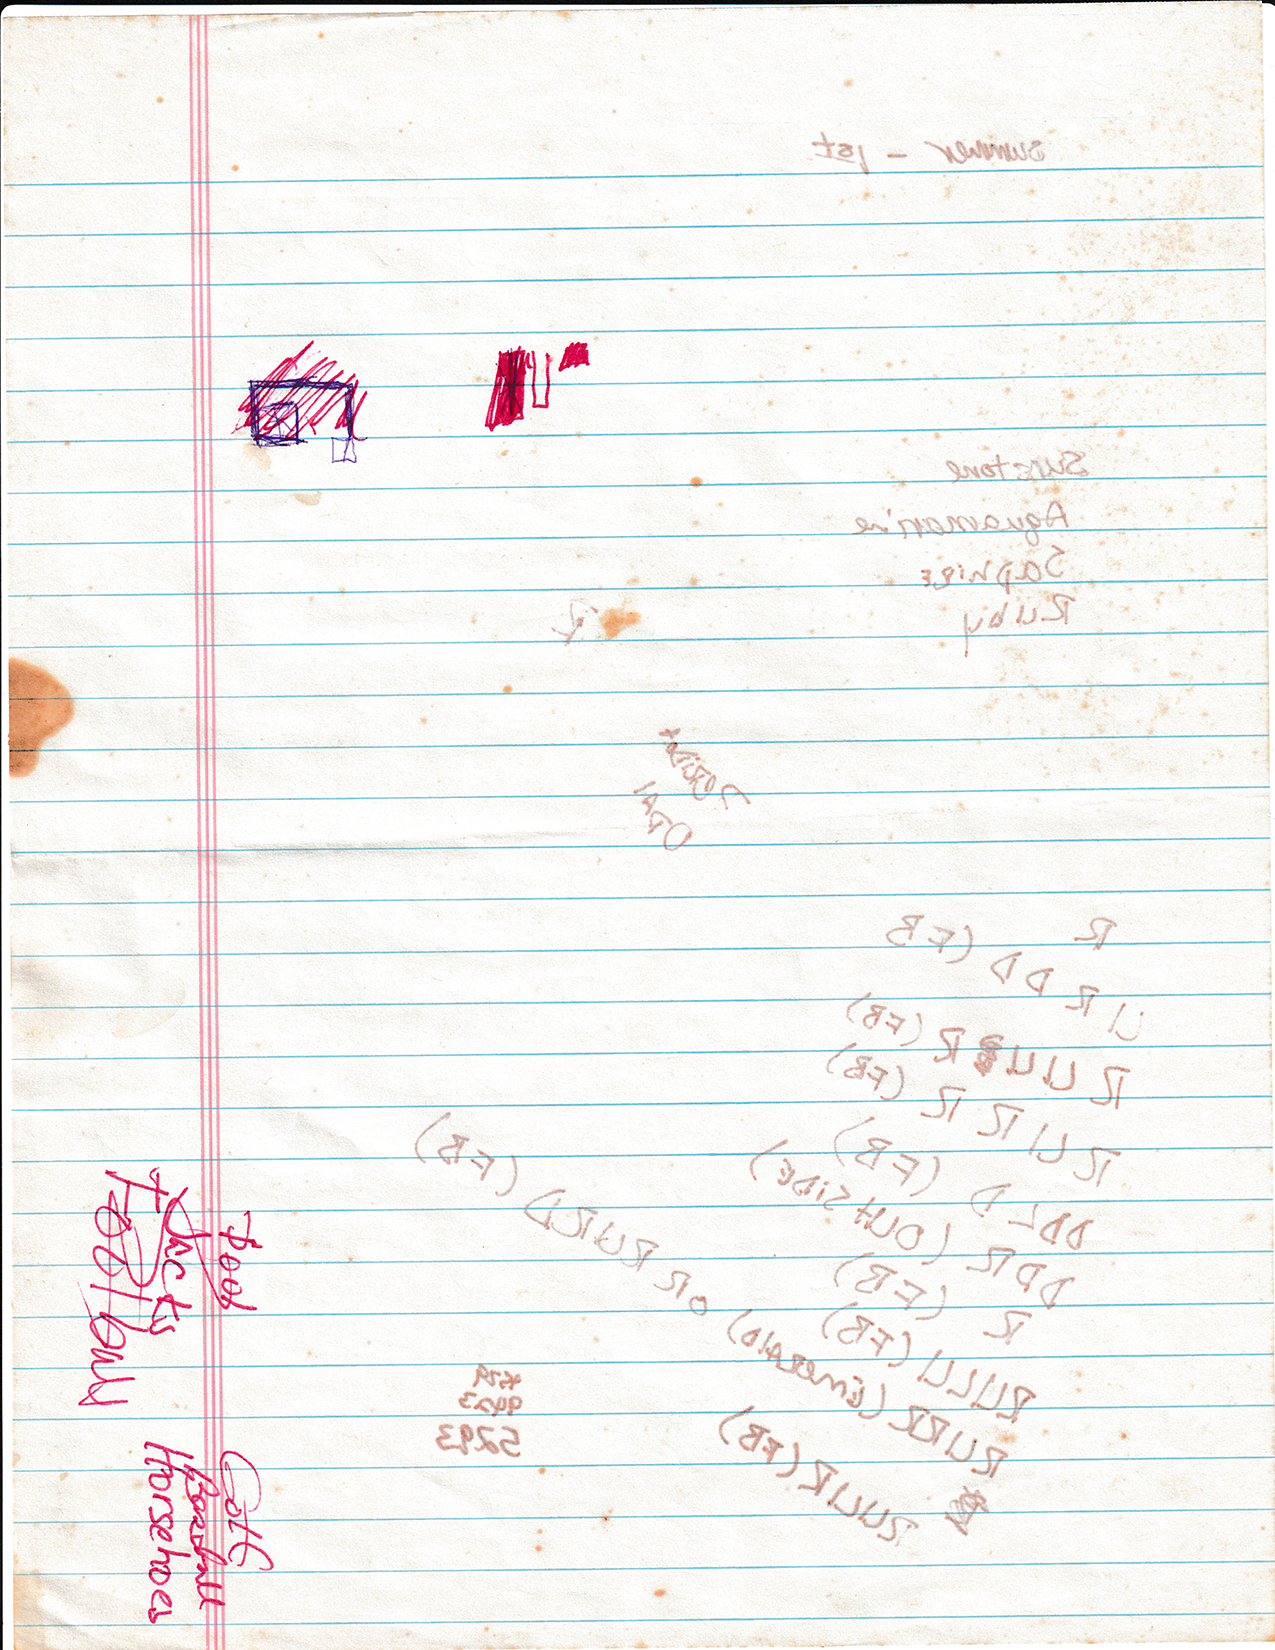 Summer - 1st
Sunstone
Aquamarine
Saphire
Ruby
R
Opal
R
U R DD (FB
R U U R (FB)
R U R R (FB)
DDLD (FB)
DDR (OUtSiDE)
R (FB)
RULU (FB)
RURR (EmeRAlD) OR RURD (FB)
RULIR (FB)
4679
9423
5293
Pool
Jacks
Football
Golf
Baseball
Horsehoes